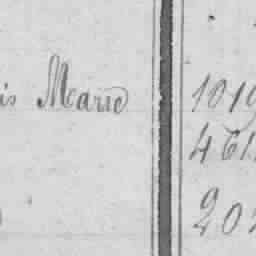 is Marie 1019
461
202